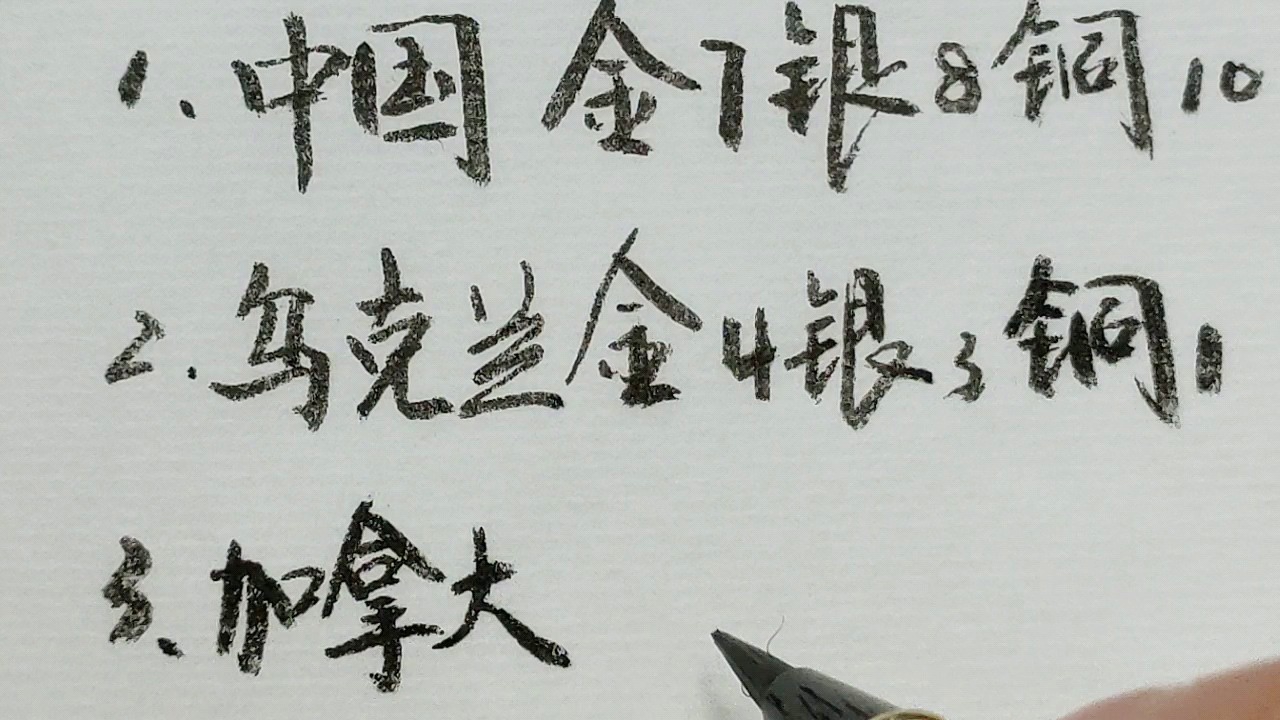 1.中国 金7银8铜10
2.乌克兰金4银3铜1
3、加拿大